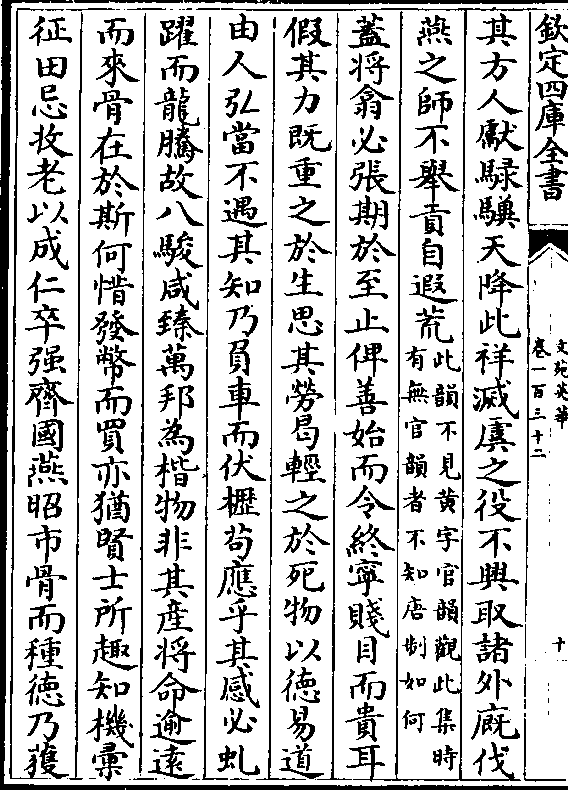 欽定四庫全書
文苑英華
卷一百三十二
十
其方人獻騄驥天降此祥滅虞之役不興取諸外廐伐
燕之師不舉貢自遐荒
此韻不見黄字官韻觀此集時
有無官韻者不知唐制如何
蓋将翕必張期於至止俾善始而令終寧賤目而貴耳
假其力既重之於生思其勞曷輕之於死物以徳易道
由人弘當不遇其知乃負車而伏櫪茍應乎其感必虬
躍而龍騰故八駿咸臻萬邦為楷物非其産将命逾遠
而來骨在於斯何惜發幣而買亦猶賢士所趣知機彚
征田忌收老以成仁卒强齊國燕昭市骨而種徳乃蒦